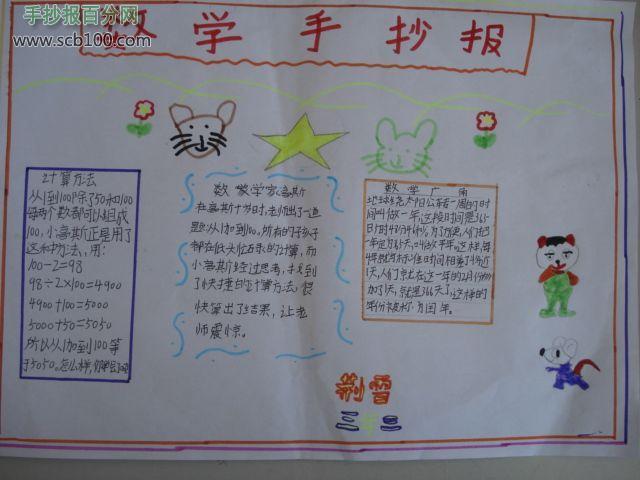 手抄报百分网
www.scb100.com
数学手抄报
计算方法
从1到100除了50和100
每两个数都可以组成
100,小高斯正是用了
这种方法,用:
100-2=98
98÷2×100=4900
4900+100=5000
5000+50=5050
所以从1加到100等
于5050。怎么样,
数学家高斯
在高斯十岁时,老师出了一道
题:从1加到100,所有的孩子
都在低头
小高斯经过思考,找到
了快捷的计算方法,很
快算出了结果,让老
师震惊。
数学广角
地球绕太阳公转一周的时
间叫做一年。这段时间是365
日5时48分46秒。为了方便,人们把
一年定为365天,叫做平年。这样,每
4年就
天,人们就在这一年的2月份
加了天,就是366天了,这样的
年份被称为闰年。
荆雪
三年三